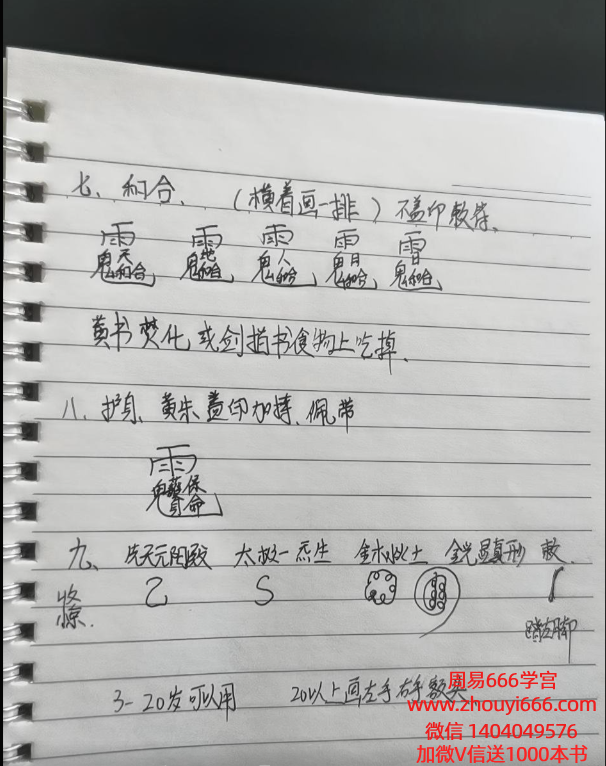 七、和合、（横着画一排）不盖印敕符。
雨 雨 雨 雨 雨
鬼天和合 鬼地和合 鬼人和合 鬼月和合 鬼日和合
黄书焚化或剑指书食物上吃掉、
八、护身、黄朱盖印加持、佩带
雨
鬼 保命
九、先天元阳敕 太极一炁生 金木水火土 金光显真形 敕、
收惊、
踏左脚
3-20岁可以用 20以上画左手右手
周易666学宫
www.zhouyi666.com
微信 1404049576
加微V信送1000本书